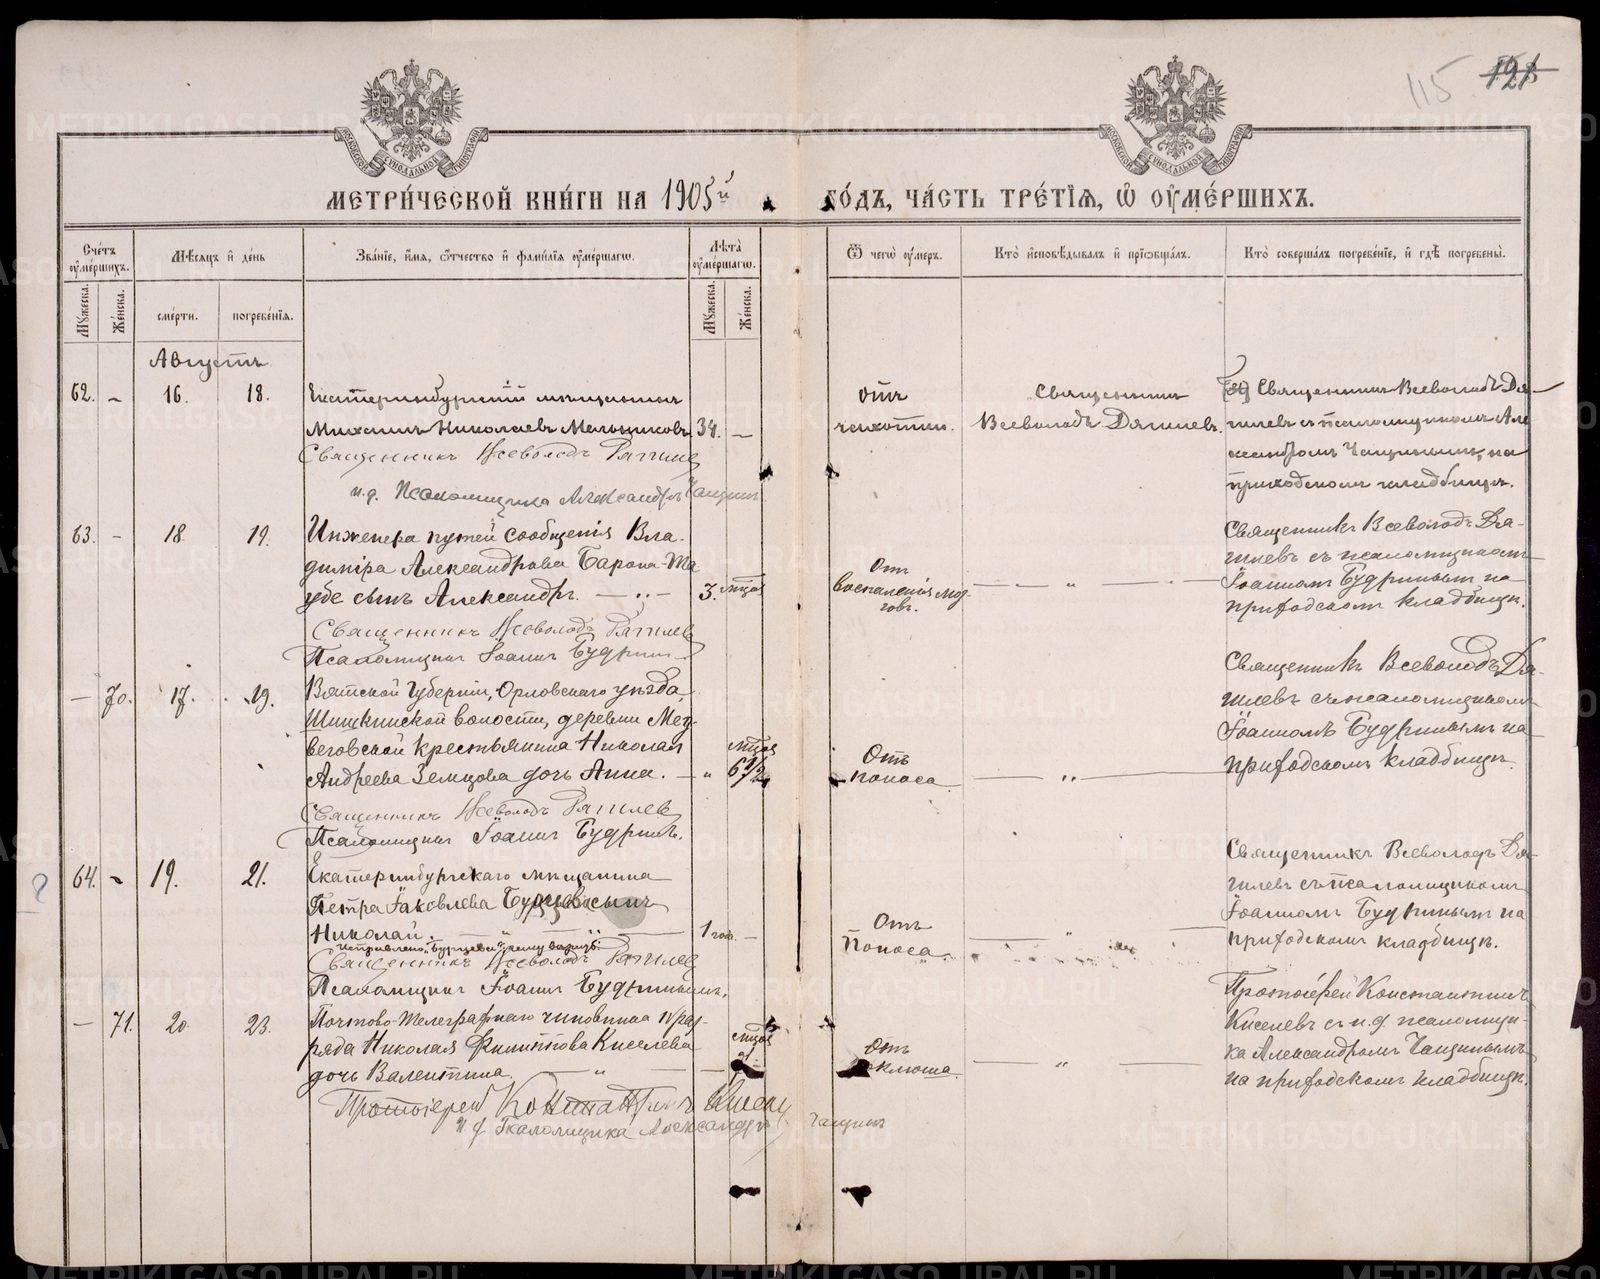 115 121
МЕТРИ́ЧЕСКОЙ КНИ́ГИ НА 1905й ГО́ДЪ, ЧА́СТЬ ТРЕ́ТІѦ, Ѡ ОУМЕ́РШИХЪ.
Сче́тъ оуме́ршихъ.
Мѣ́сяцъ и де́нь
Зва́нїе, и́мя, о́тчество и фами́лїя оуме́ршагѡ.
Лѣта̀ оуме́ршагѡ.
Ѿ чегѡ̀ оу́меръ.
Кто̀ и҆сповѣ́дывалъ и҆ прїѡбща́лъ.
Кто̀ соверша́лъ погребе́нїе, и҆ гдѣ̀ погребены̀.
Му́жеска.
Же́нска.
сме́рти.
погребе́нїя.
Му́жеска.
Же́нска.
Августъ
62. – 16. 18.
Екатеринбургскій мѣщанинъ
Михаилъ Николаевъ Мельниковъ 34. –
Священникъ Всеволодъ Дягилев
и.д. Псаломщика Александръ Чащинъ
отъ
чахотки.
Священникъ
Всеволодъ Дягилевъ.
Священникъ Всеволодъ Дя-
гилевъ с псаломщикомъ Але
ксандромъ Чащинымъ, на
приходскомъ кладбищѣ.
63. – 18. 19.
Инженера путей сообщенія Вла-
диміра Александрова Барона-Та
убе сынъ Александръ. – „ – 3. мѣсяц
Священникъ Всеволодъ Дягилев
Псаломщикъ Іоаннъ Будринъ
Отъ
воспаленія моз-
говъ.
„
Священникъ Всеволодъ Дя-
гилевъ съ псаломщикомъ
Іоанномъ Будринымъ на
приходскомъ кладбищѣ.
– 70. 17. 19.
Вятской Губерніи, Орловскаго уѣзда,
Шишкинской волости, деревни Мед-
веговской крестьянина Николая
Андреева Земцова дочь Анна. – „ мѣсяц 6 1/2
Священникъ Всеволодъ Дягилев
Псаломщикъ Іоаннъ Будринъ.
Отъ
поноса
„
Священникъ Всеволодъ Дя-
гилевъ съ псаломщикомъ
Іоанномъ Будринымъ на
приходскомъ кладбищѣ.
64. – 19. 21.
Екатеринбургскаго мѣщанина
Петра Іаковлева Бурцева сынъ
Николай. – „ – 1 годъ. –
Исправлено „Бурцева“ сему вѣрить.
Священникъ Всеволодъ Дягилев
Псаломщикъ Іоаннъ Будринъ.
Отъ
Поноса
„
Священникъ Всеволодъ Дя-
гилевъ съ псаломщикомъ
Іоанномъ Будринымъ на
приходскомъ кладбищѣ.
– 71. 20. 23.
Почтово-Телеграфнаго чиновника IV раз-
ряда Николая Филиппова Киселева
дочь Валентина. – „ –
Протоіерей Константинъ Кисел
и.д. Псаломщика Александръ Чащинъ
Отъ
коклюша.
„
Протоіерей Константинъ
Киселевъ с и.д. псаломщи-
ка Александромъ Чащинымъ
на приходскомъ кладбищѣ.